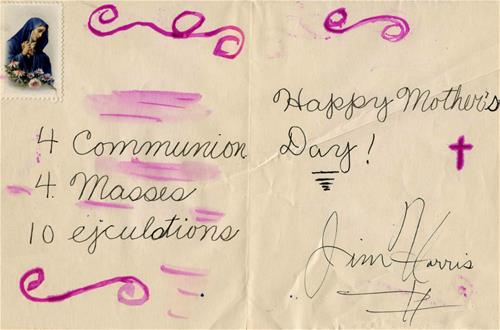 4 Communion
4 Masses
10 ejculations
Happy Mother's
Day!
Jim Harris